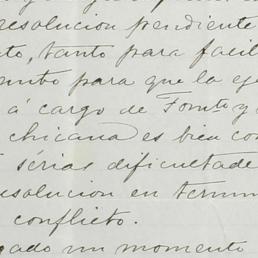 resolucion pendiente
to, tanto para facil
para que la eje
á cargo de Fomto, y
chicana es bien con
sérias dificultade
esolucion en termin
conflicto.
gado un momento